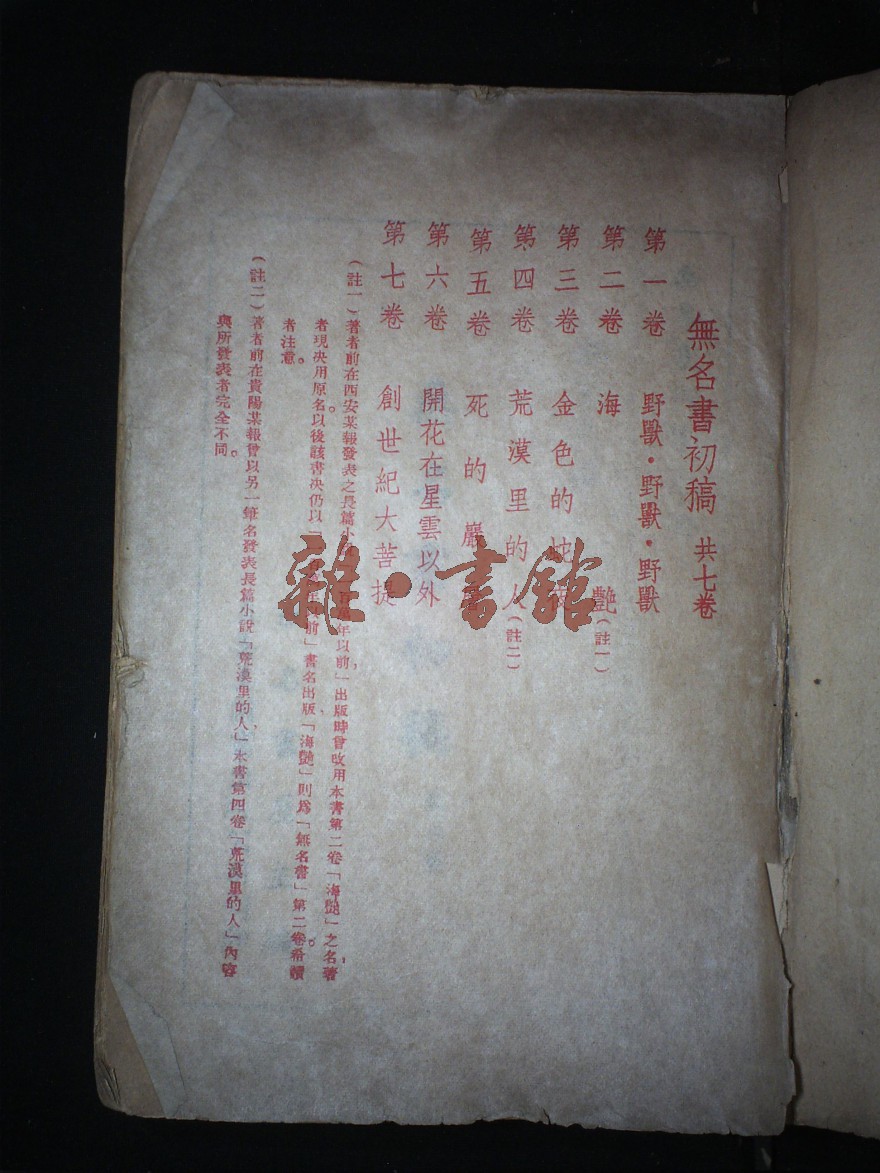 無名書初稿 共七卷
第一卷 野獸·野獸·野獸
第二卷 海艷(註一)
第三卷 金色的蛇夜
第四卷 荒漠里的人(註二)
第五卷 死的巖層
第六卷 開花在星雲以外
第七卷 創世紀大菩提
(註一)著者前在西安某報發表之長篇小說 年以前」出版時曾改用本書第二卷「海艷」之名,著
者現决用原名。以後該書决仍以「 年以前」書名出版、「海艷」則爲「無名書」第二卷。希讀
者注意。
(註二)著者前在貴陽某報曾以另一筆名發表長篇小說「荒漠里的人」,本書第四卷「荒漠里的人」內容
與所發表者完全不同。
雜·書館